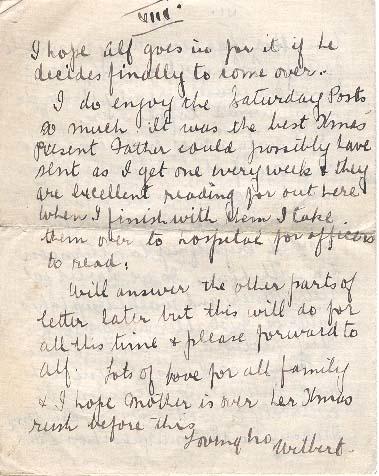 VIII.
I hope Alf goes in for it if he
decides finally to come over.
I do enjoy the Saturday Posts
so much. It was the best Xmas
Present Father could possibly have
sent as I get one every week & they
are excellent reading for out here
when I finish with them I take
them over to hospital for officers
to read.
Will answer the other parts of
letter later but this will do for
all this time & please forward to
Alf. Lots of love for all family
& I hope Mother is over her Xmas
rush before this
Loving bro
Wilbert.